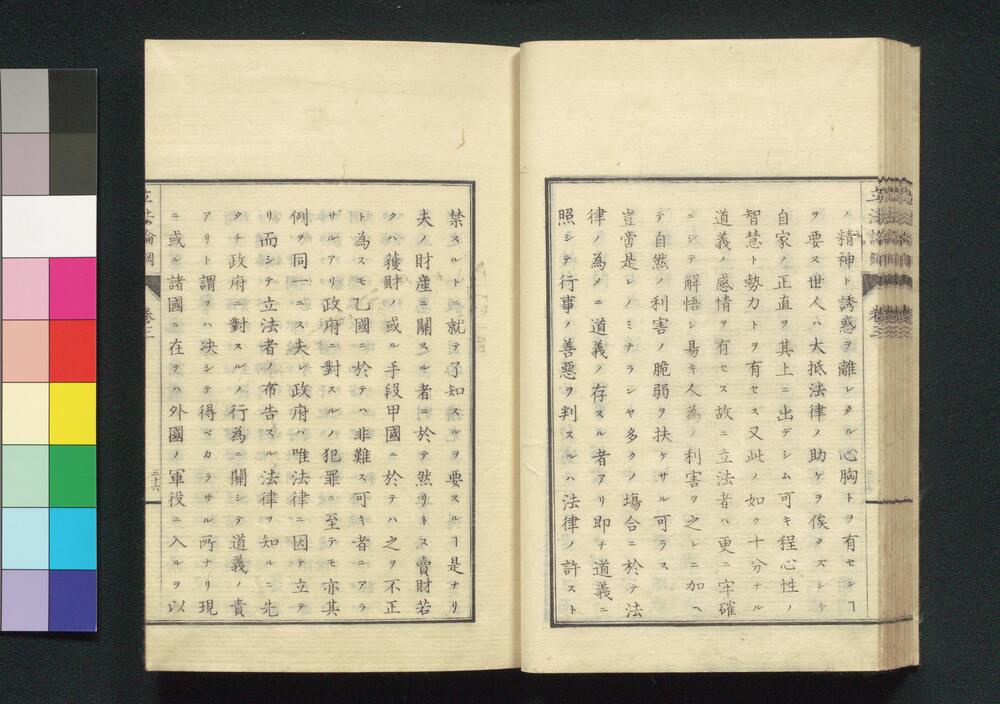 ノ精神ト誘惑ヲ離レタル心胸トヲ有センヿ
ヲ要ス世人ハ大抵法律ノ助ケヲ俟タズシテ
自家ノ正直ヲ其上ニ出デシム可キ程心性ノ
智慧ト勢力トヲ有セス又此ノ如ク十分ナル
道義ノ感情ヲ有セス故ニ立法者ハ更ニ牢確
ニシテ解悟シ易キ人為ノ利害ヲ之レニ加ヘ
テ自然ノ利害ノ脆弱ヲ扶ケザル可ラス
豈啻是レノミナラシヤ多クノ塲合ニ於テ法
律ノ為メニ道義ノ存スル者アリ即チ道義ニ
照シテ行事ノ善惡ヲ判スルハ法律ノ許スト
禁スルトニ就テ了知スルヲ要スルヿ是ナリ
夫ノ財産ニ關スル者ニ於テ然リトス賣財若
クハ獲財ノ或ル手段甲國ニ於テハ之ヲ不正
ト為スモ乙國ニ於テハ非難ス可キ者ニアラ
サルアリ政府ニ對スルノ犯罪ニ至テモ亦其
例ヲ同一ニス夫レ政府ハ唯法律ニ因テ立テ
リ而シテ立法者ノ布告スル法律ヲ知ルニ先
タチ政府ニ對スルノ行為ニ關シテ道義ノ責
アリト謂フハ决シテ得ベカラサル所ナリ現
ニ或ル諸國ニ在テハ外國ノ軍役ニ入ルヲ以
立法論綱
卷二
三十六